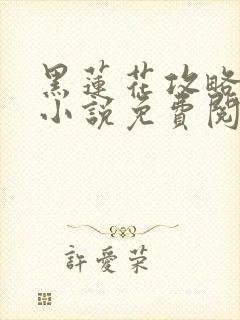 黑蓮花攻略
小說免費閱
許愛榮